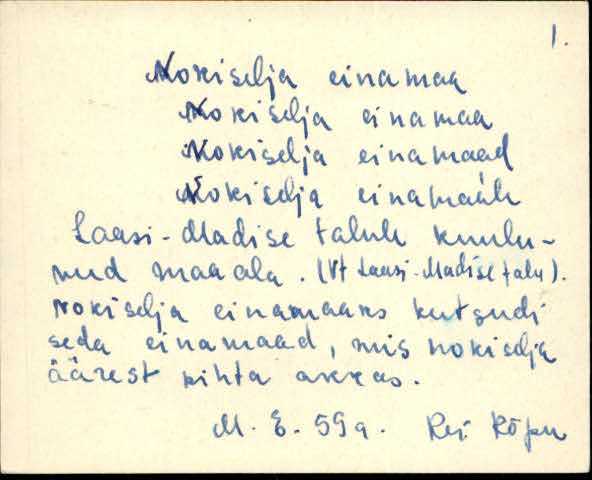 1.
Nokiselja einamaa
Nokiselja einamaa
Nokiselja einamaad
Nokiselja einamaale
Laasi-Madise talule kuulu-
nud maaala. (Vt Laasi-Madise talu).
Nokiselja einamaaks kutsudi
seda einamaad, mis nokiselja
äärest pihta akkas.
M. E. 59 a. Rei Kõpu